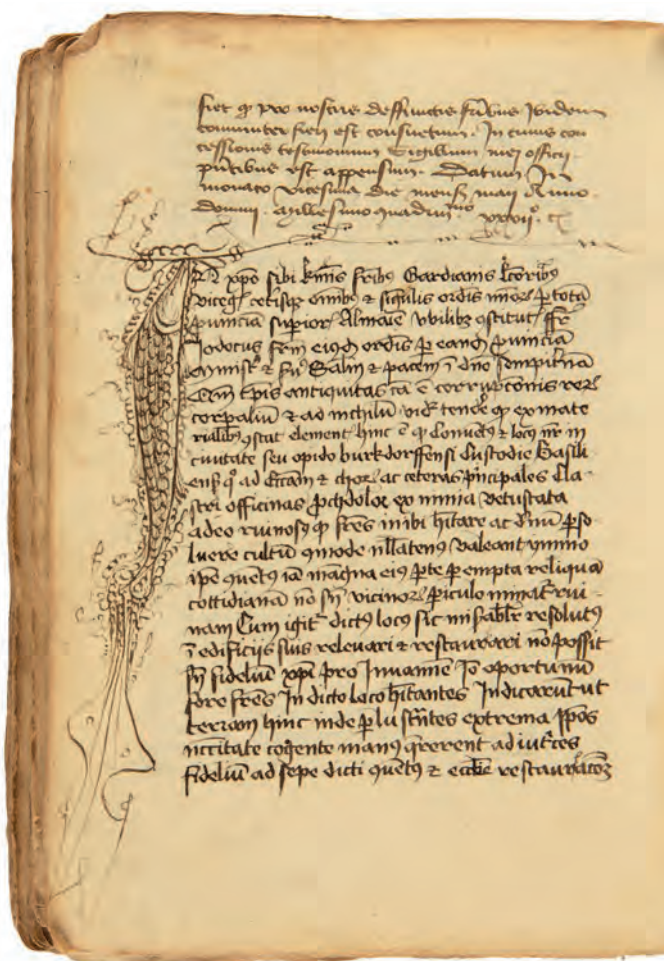 fiet q pro nostris deffunctis fribus Ibidem
communiter fieri est consuetum. In cuius con
cessionis testimonium Sigillum mei officii
pntibus est appensum. Datum In
monaco vicesima die mensis maii Anno
domini. Millesimo quadrin^mo xxvii^o.
In xpo sibi kmis fribus Gardianis lcoribus
viceg ceterisque omibus & singulis ordis mior p totā
puinciā superior Almaie vbilibz ɔstitut ffr
Jodocus frm eiusdē ordis p eandē puinciā
minist & fu Salm & pacem ī dno sempiternā
Cum tpis antiquitas cā ē corrupconis rerū
corpaliū & ad nichilū tende q ex mate
rialibus ɔstat element hinc ē q Conuetus & locus nr in
ciuitate seu opido burkdorffensi Custodie Basili
ens q ad Eccam & chor ac ceteras pncipales Cla-
stri officinas pchdolor ex nimia vetustata
adeo ruinosus q fres inibi hitare ac dinū pso
luere cultū qmode nllatenus valeant ymmo
ipe quetus iā magna eius pte pempta reliqua
cottidianā nō sn vicinor piculo minatr rui-
nam Cum igitr dictus locus sic misablr resolutus
ī edificijs suis releuari & restaurari nō possit
sn fideliū xpi pro Inuamine Io oportunū
fore fres In dicto loco hitantes Indicarunt ut
terrarum hinc inde plustntes extrema Ipos
nccitate cogente manus qrerent adiutces
fideliū ad sepe dicti quetus & eccle restauracoz